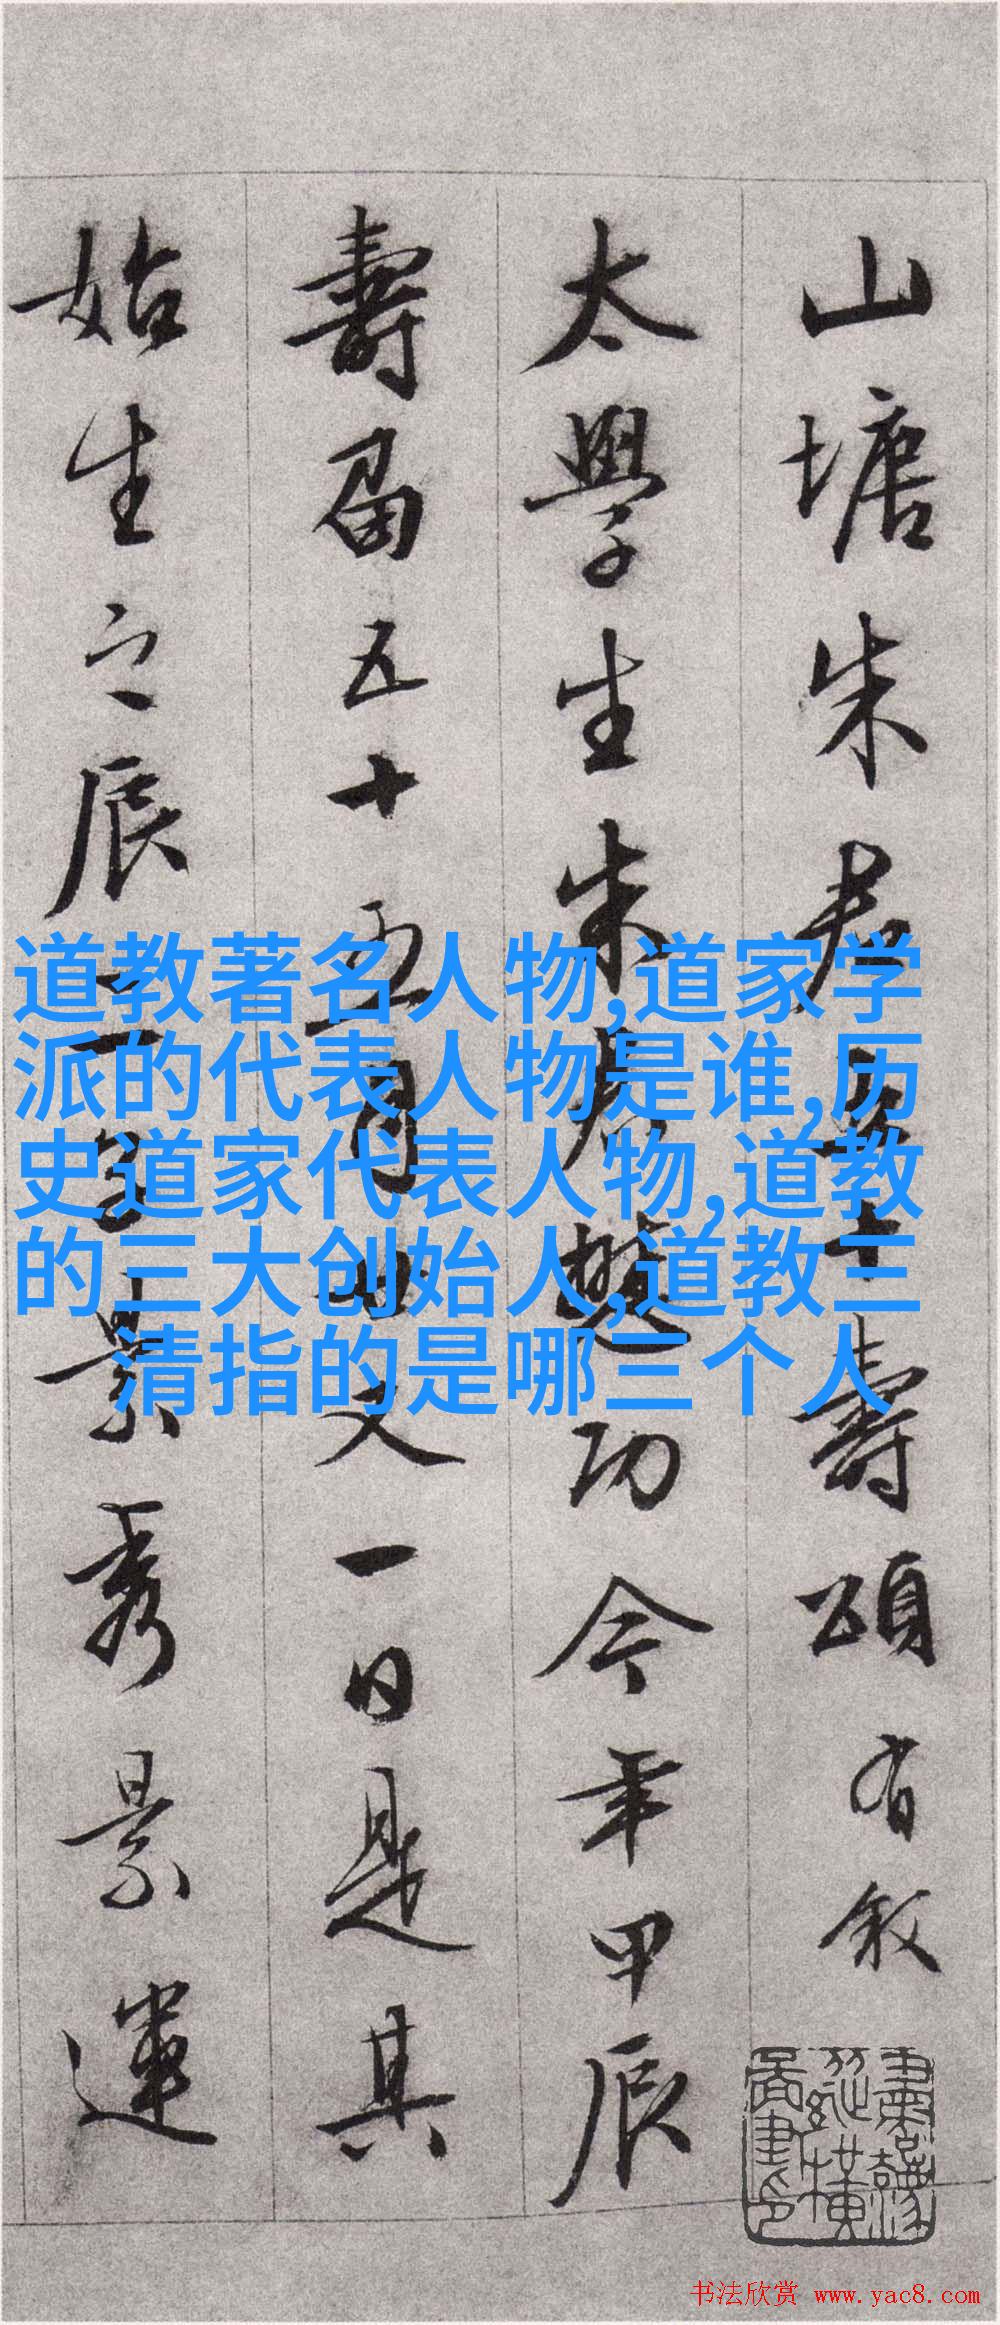 山塘朱君五十壽頌有敘
太學生朱君懋功今年甲辰
壽屆五十五月廿又一日是其
始生之辰
景秀景運
道教著名人物,道家学
派的代表人物是谁,历
史道家代表人物,道教
的三大创始人,道教三
清指的是哪三个人
书法欣赏 www.yac8.com